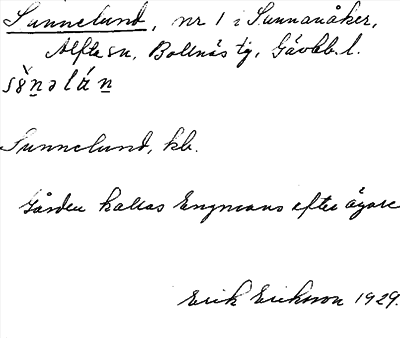 Sunnelund, nr 1 i Sunnanåker,
Alfta sn, Bollnäs tg, Gävleb. l.
Sunnelund, kb.
Gården kallas Engmans efter ägare
Erik Erikson 1929.